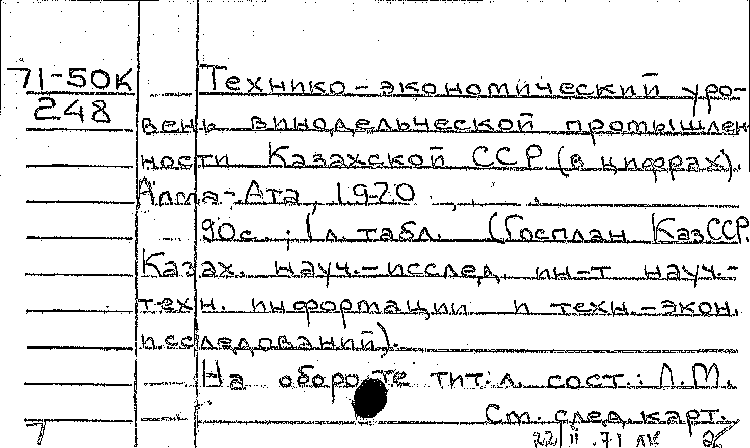 71-50К
248
Технико-экономический уро-
вень винодельческой промышлен
ности Казахской ССР (в цифрах).
Алма-Ата, 1970
90с.; 1 л. табл. (Госплан КазССР.
Казах. науч.-исслед. ин-т науч.-
техн. информации и техн.-экон.
исследований).
На обороте тит. л. сост.: Л.М.
См. след. карт.
7
22/II.71